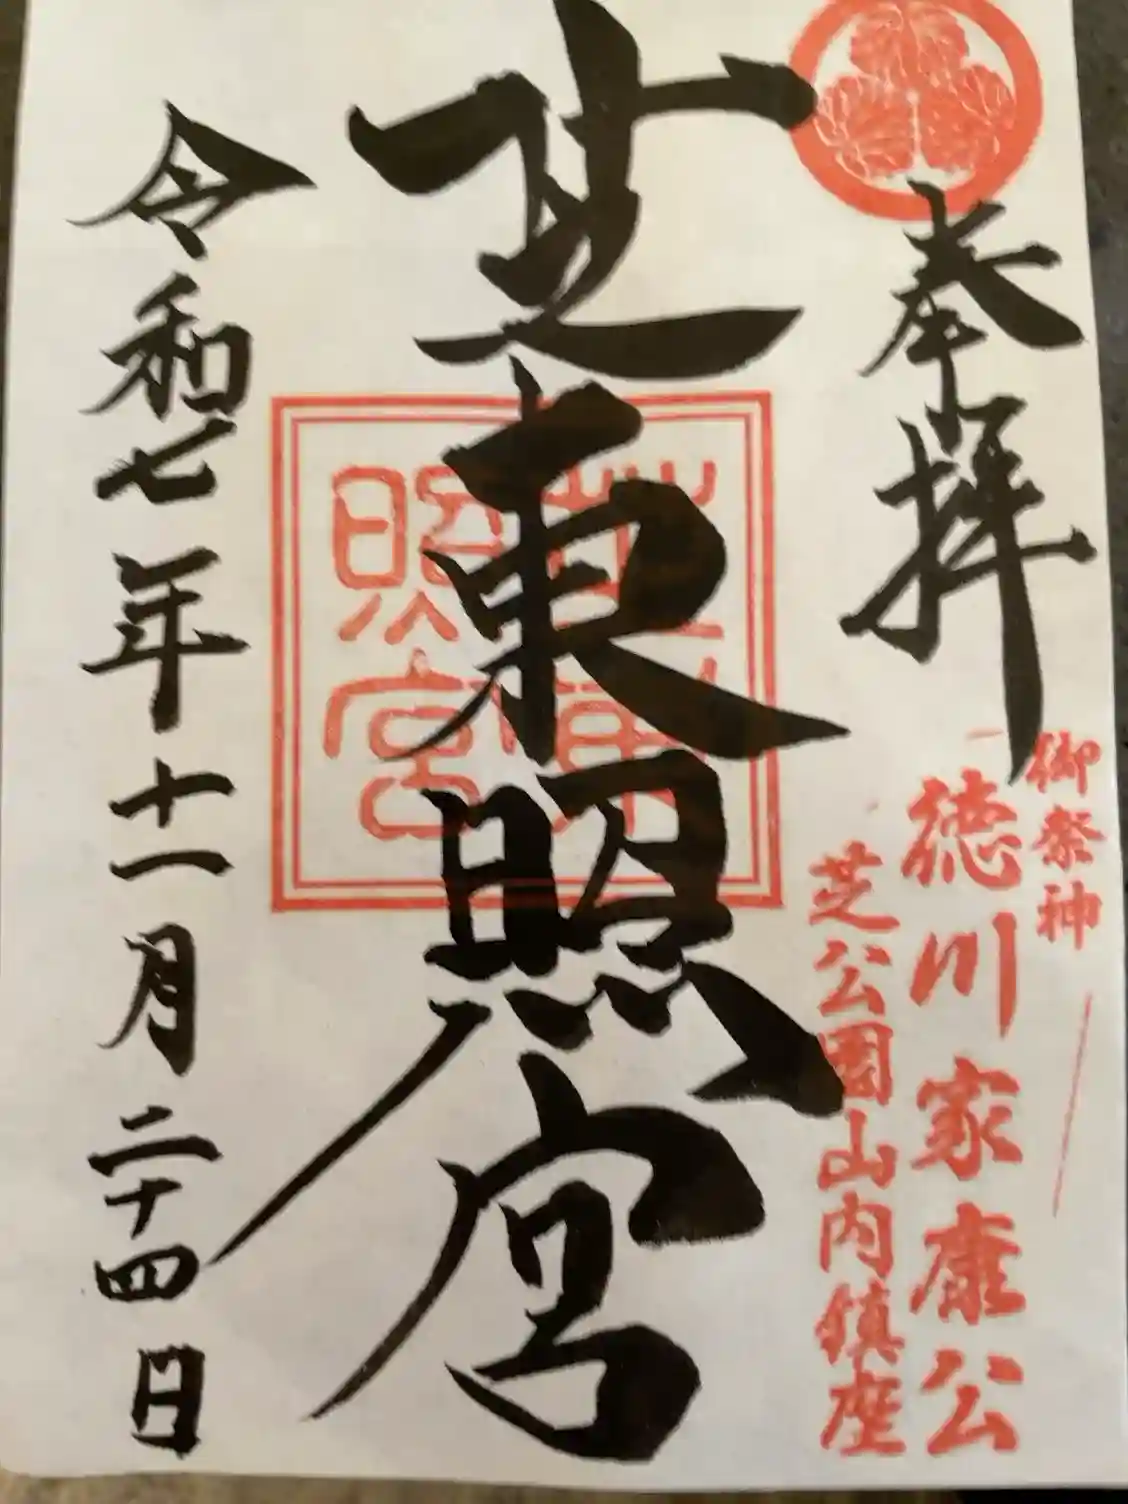 奉拝
御祭神
徳川家康公
芝公園山内鎮座
芝東照宮
芝東
照宮
令和七年十一月二十四日